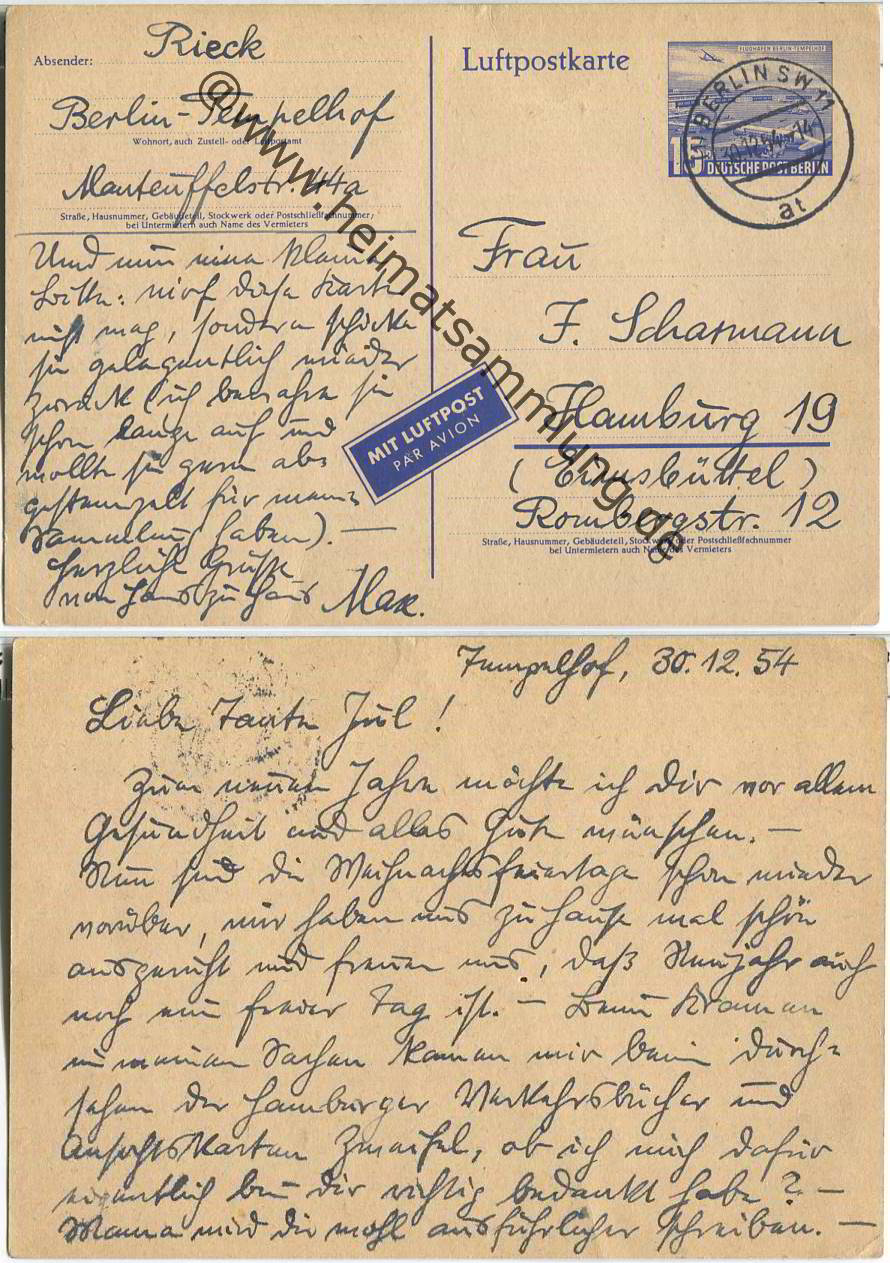 Absender: Rieck
Berlin-Tempelhof
Wohnort, auch Zustell- oder Leitpostamt
Manteuffelstr. 44a
Straße, Hausnummer, Gebäudeteil, Stockwerk oder Postschließfachnummer;
bei Untermietern auch Name des Vermieters
Und nun eine kleine
Bitte: wirf diese Karte
nicht weg, sondern schicke
sie gelegentlich wieder
zurück (ich bewahre sie
schon lange auf und
wollte sie gern abs
gestempelt für meine
Sammlung haben). —
Herzliche Grüße
von Haus zu Haus Max.
Luftpostkarte
FLUGHAFEN BERLIN-TEMPELHOF
15
DEUTSCHE POST BERLIN
BERLIN SW 11
30.12.54.-14
at
Frau
F. Scharmann
MIT LUFTPOST
PAR AVION
Hamburg 19
(Eimsbüttel)
Rombergstr. 12
Straße, Hausnummer, Gebäudeteil, Stockwerk oder Postschließfachnummer
bei Untermietern auch Name des Vermieters
© www.heimatsammlung.de
Tempelhof, 30.12.54
Liebe Tante Jul!
Zum neuen Jahre möchte ich Dir vor allem
Gesundheit und alles Gute wünschen. —
Nun sind die Weihnachtsfeiertage schon wieder
vorüber, wir haben uns zu Hause mal schön
ausgeruht und freuen uns, daß Neujahr auch
noch ein freier Tag ist. — Beim Kramen
in meinen Sachen kamen mir beim Durch-
sehen der Hamburger Verkehrsbücher und
Ansichtskarten Zweifel, ob ich mich dafür
eigentlich bei Dir richtig bedankt habe? —
Mama wird Dir wohl ausführlicher schreiben. —